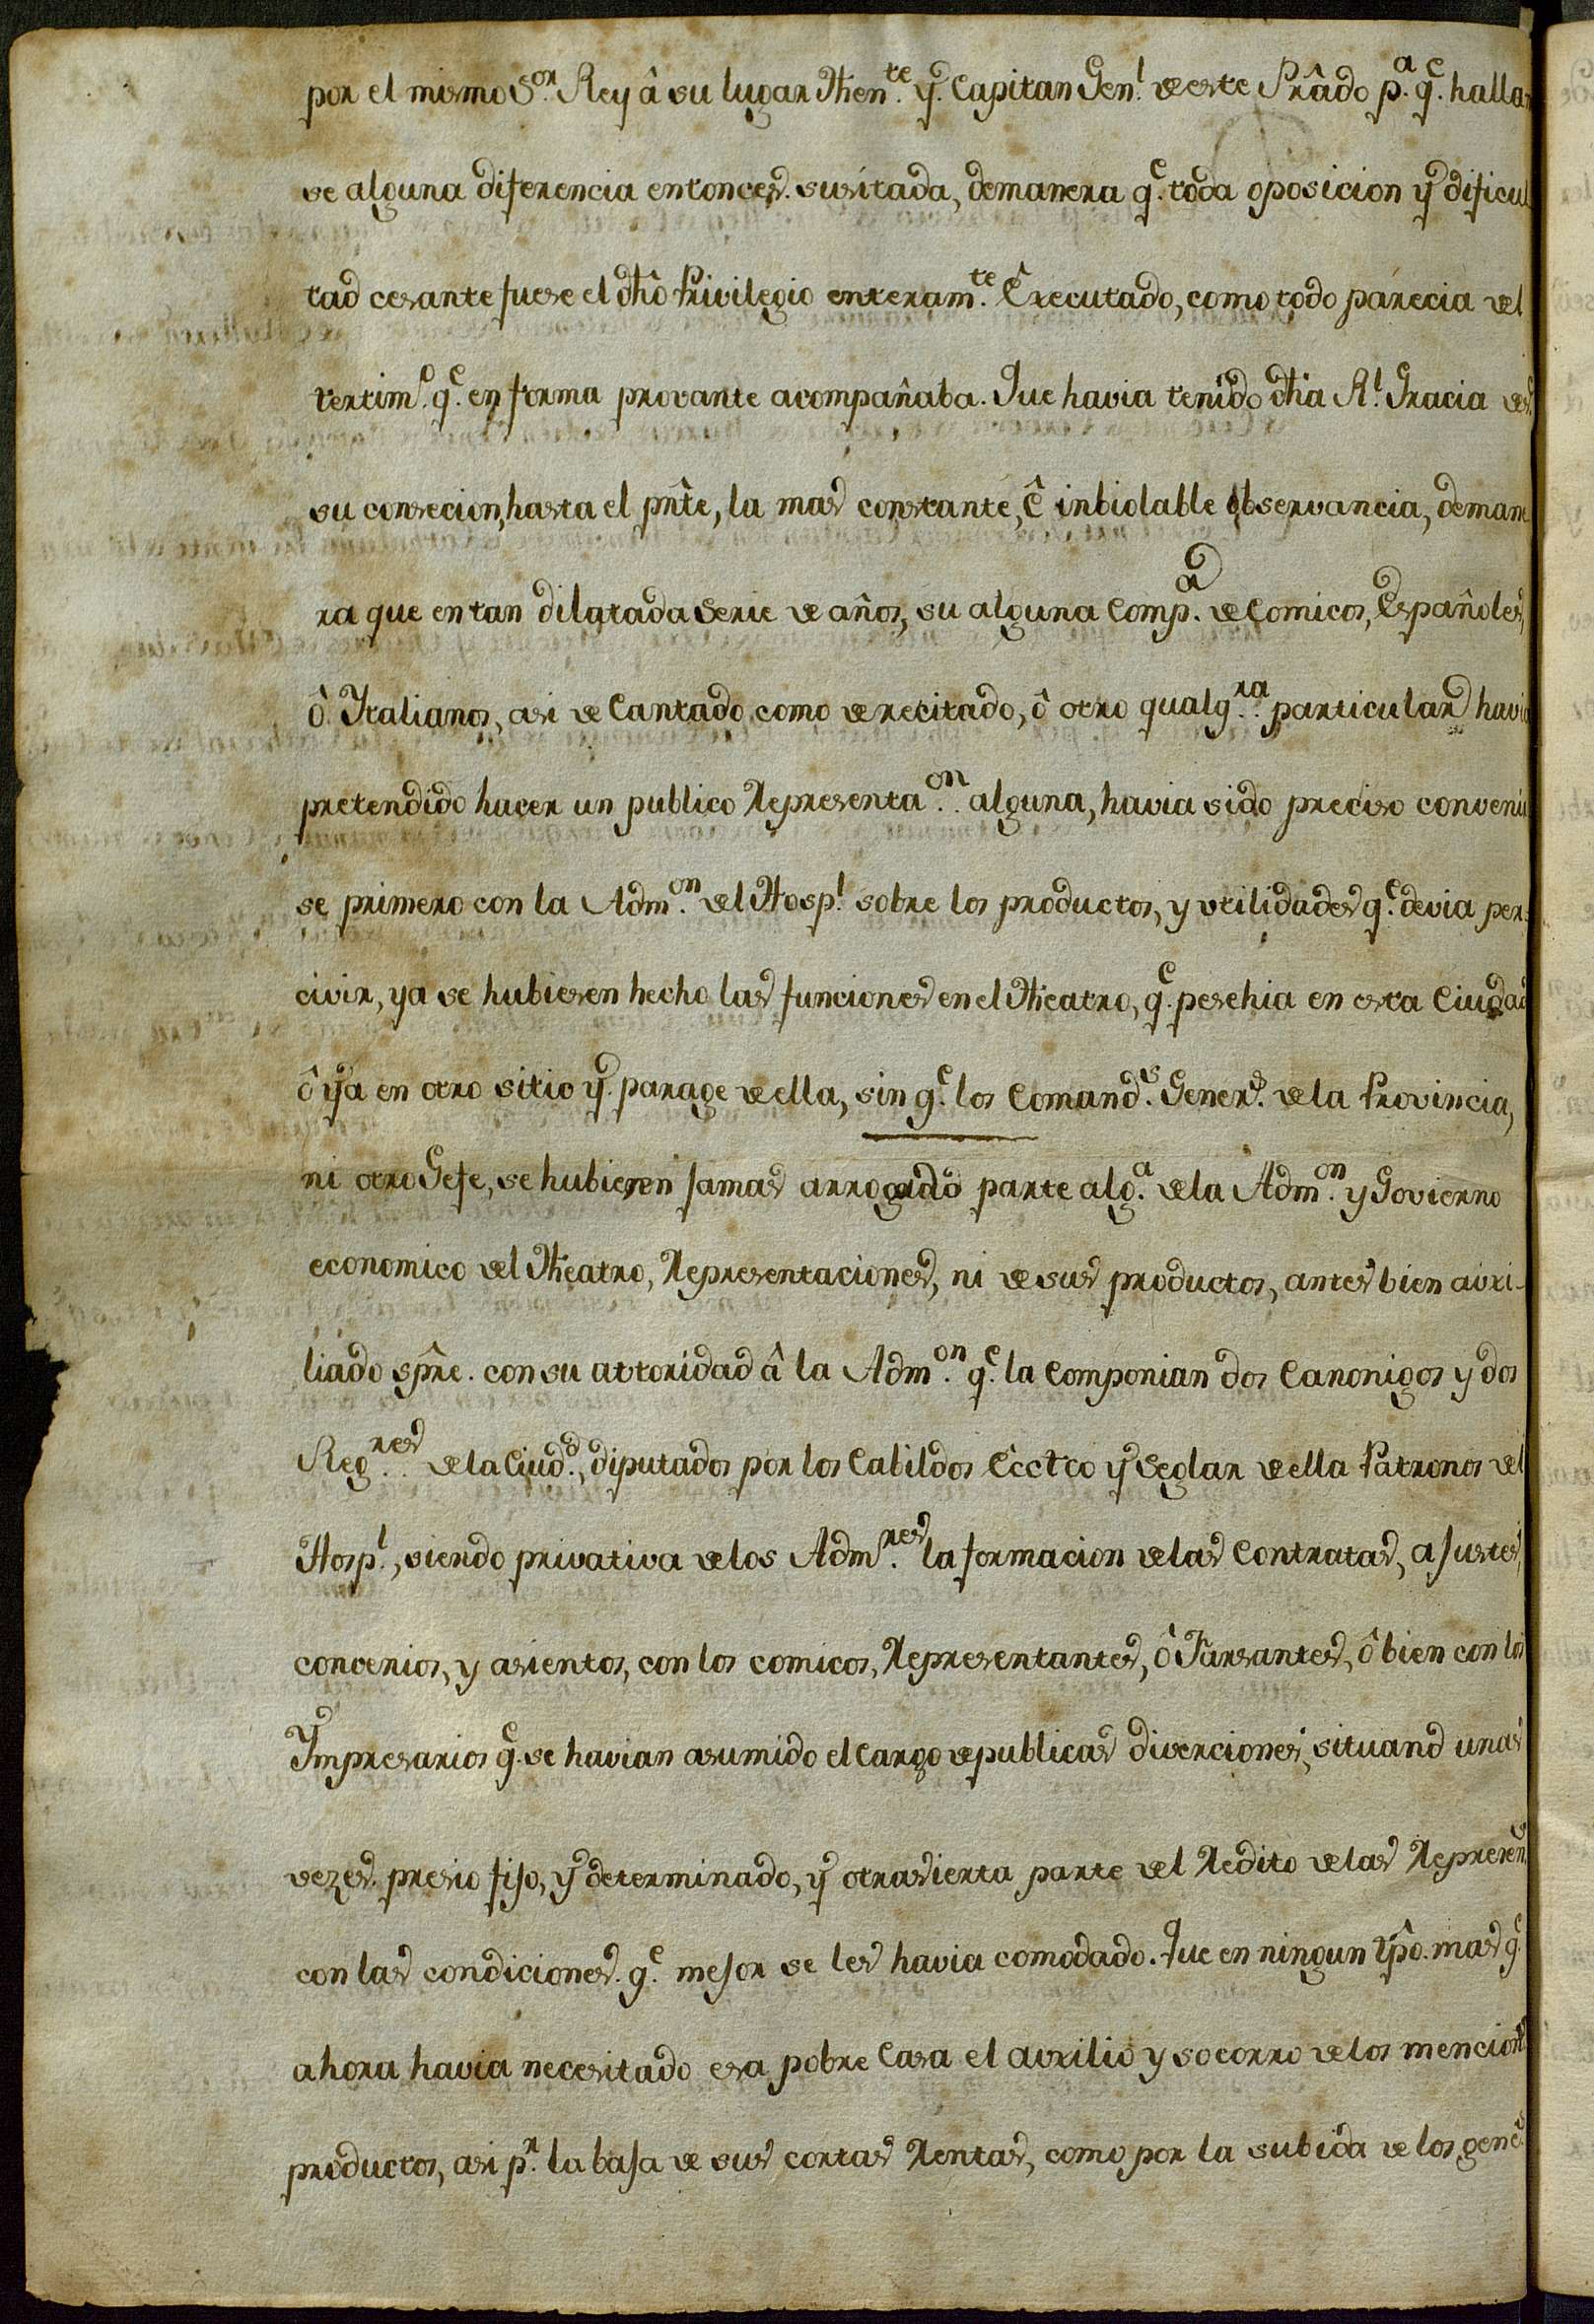 por el mismo S.or Rey â su lugar Then.te y Capitan Gen.l de este Prâdo p.a q.e hallan
se alguna diferencia entonces susitada, demanera q.e toda oposicion y dificul
tad cesante fuese el dho Privilegio enteram.te Êxecutado, como todo parecia del
tertim.o q.e en forma provante acompañaba. Que havia tenido dha R.l Gracia des.e
su consecion, hasta el pnte, la mas constante, ê inbiolable observancia, demane
ra que en tan dilatada Serie de años, su alguna Comp.a de Comicos, Españoles,
ô Italianos, asi de Cantado como de recitado, ô otro qualq.ra particular havia
pretendido hacer un publico Representa.on alguna, havia sido preciso convenir
se primero con la Adm.on del Hosp.l sobre los productos, y utilidades q.e devia per-
civir, ya se hubiesen hecho las funciones en el Theatro, q.e pesehia en esta Ciudad
ô ya en otro sitio y parage de ella, sin q.e los Comand.s Gener.s de la Provincia,
ni otro Gefe, se hubiesen jamas arrogado parte alg.a de la Adm.on y Govierno
economico del Theatro, Representaciones, ni de sus productos, antes bien auxi-
liado spre. con su attoridad â la Adm.on q.e la Componian dos Canonigos y dos
Reg.res de la Ciud.d, diputados por los Cabildos Ecctco y Seglar de ella Patronos del
Hosp.l, siendo privativa de los Adm.res la formacion de las Contratas, ajustes,
convenios, y asientos, con los comicos, Representantes, ô Farsantes, ô bien con los
Ympresarios q.e se havian asumido el Cargo de publicas diverciones, situand unas
vezes presio fijo, y determinado, y otras sierta parte del Redito de las Represen.s
con las condiciones q.e mejor se les havia comodado. Que en ningun tpo. mas q.e
ahora havia necesitado esa pobre Casa el auxilio y socorro de los mencion.s
productos, asi p.r la baja de sus cortas Rentas, como por la subida de los gene.s